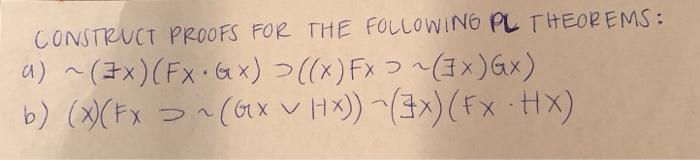 CONSTRUCT PROOFS FOR THE FOLLOWING PL THEOREMS:
a) ~(∃x)(Fx · Gx) ⊃ ((x)Fx ⊃ ~(∃x)Gx)
b) (x)(Fx ⊃ ~(Gx ∨ Hx)) ~(∃x)(Fx · Hx)